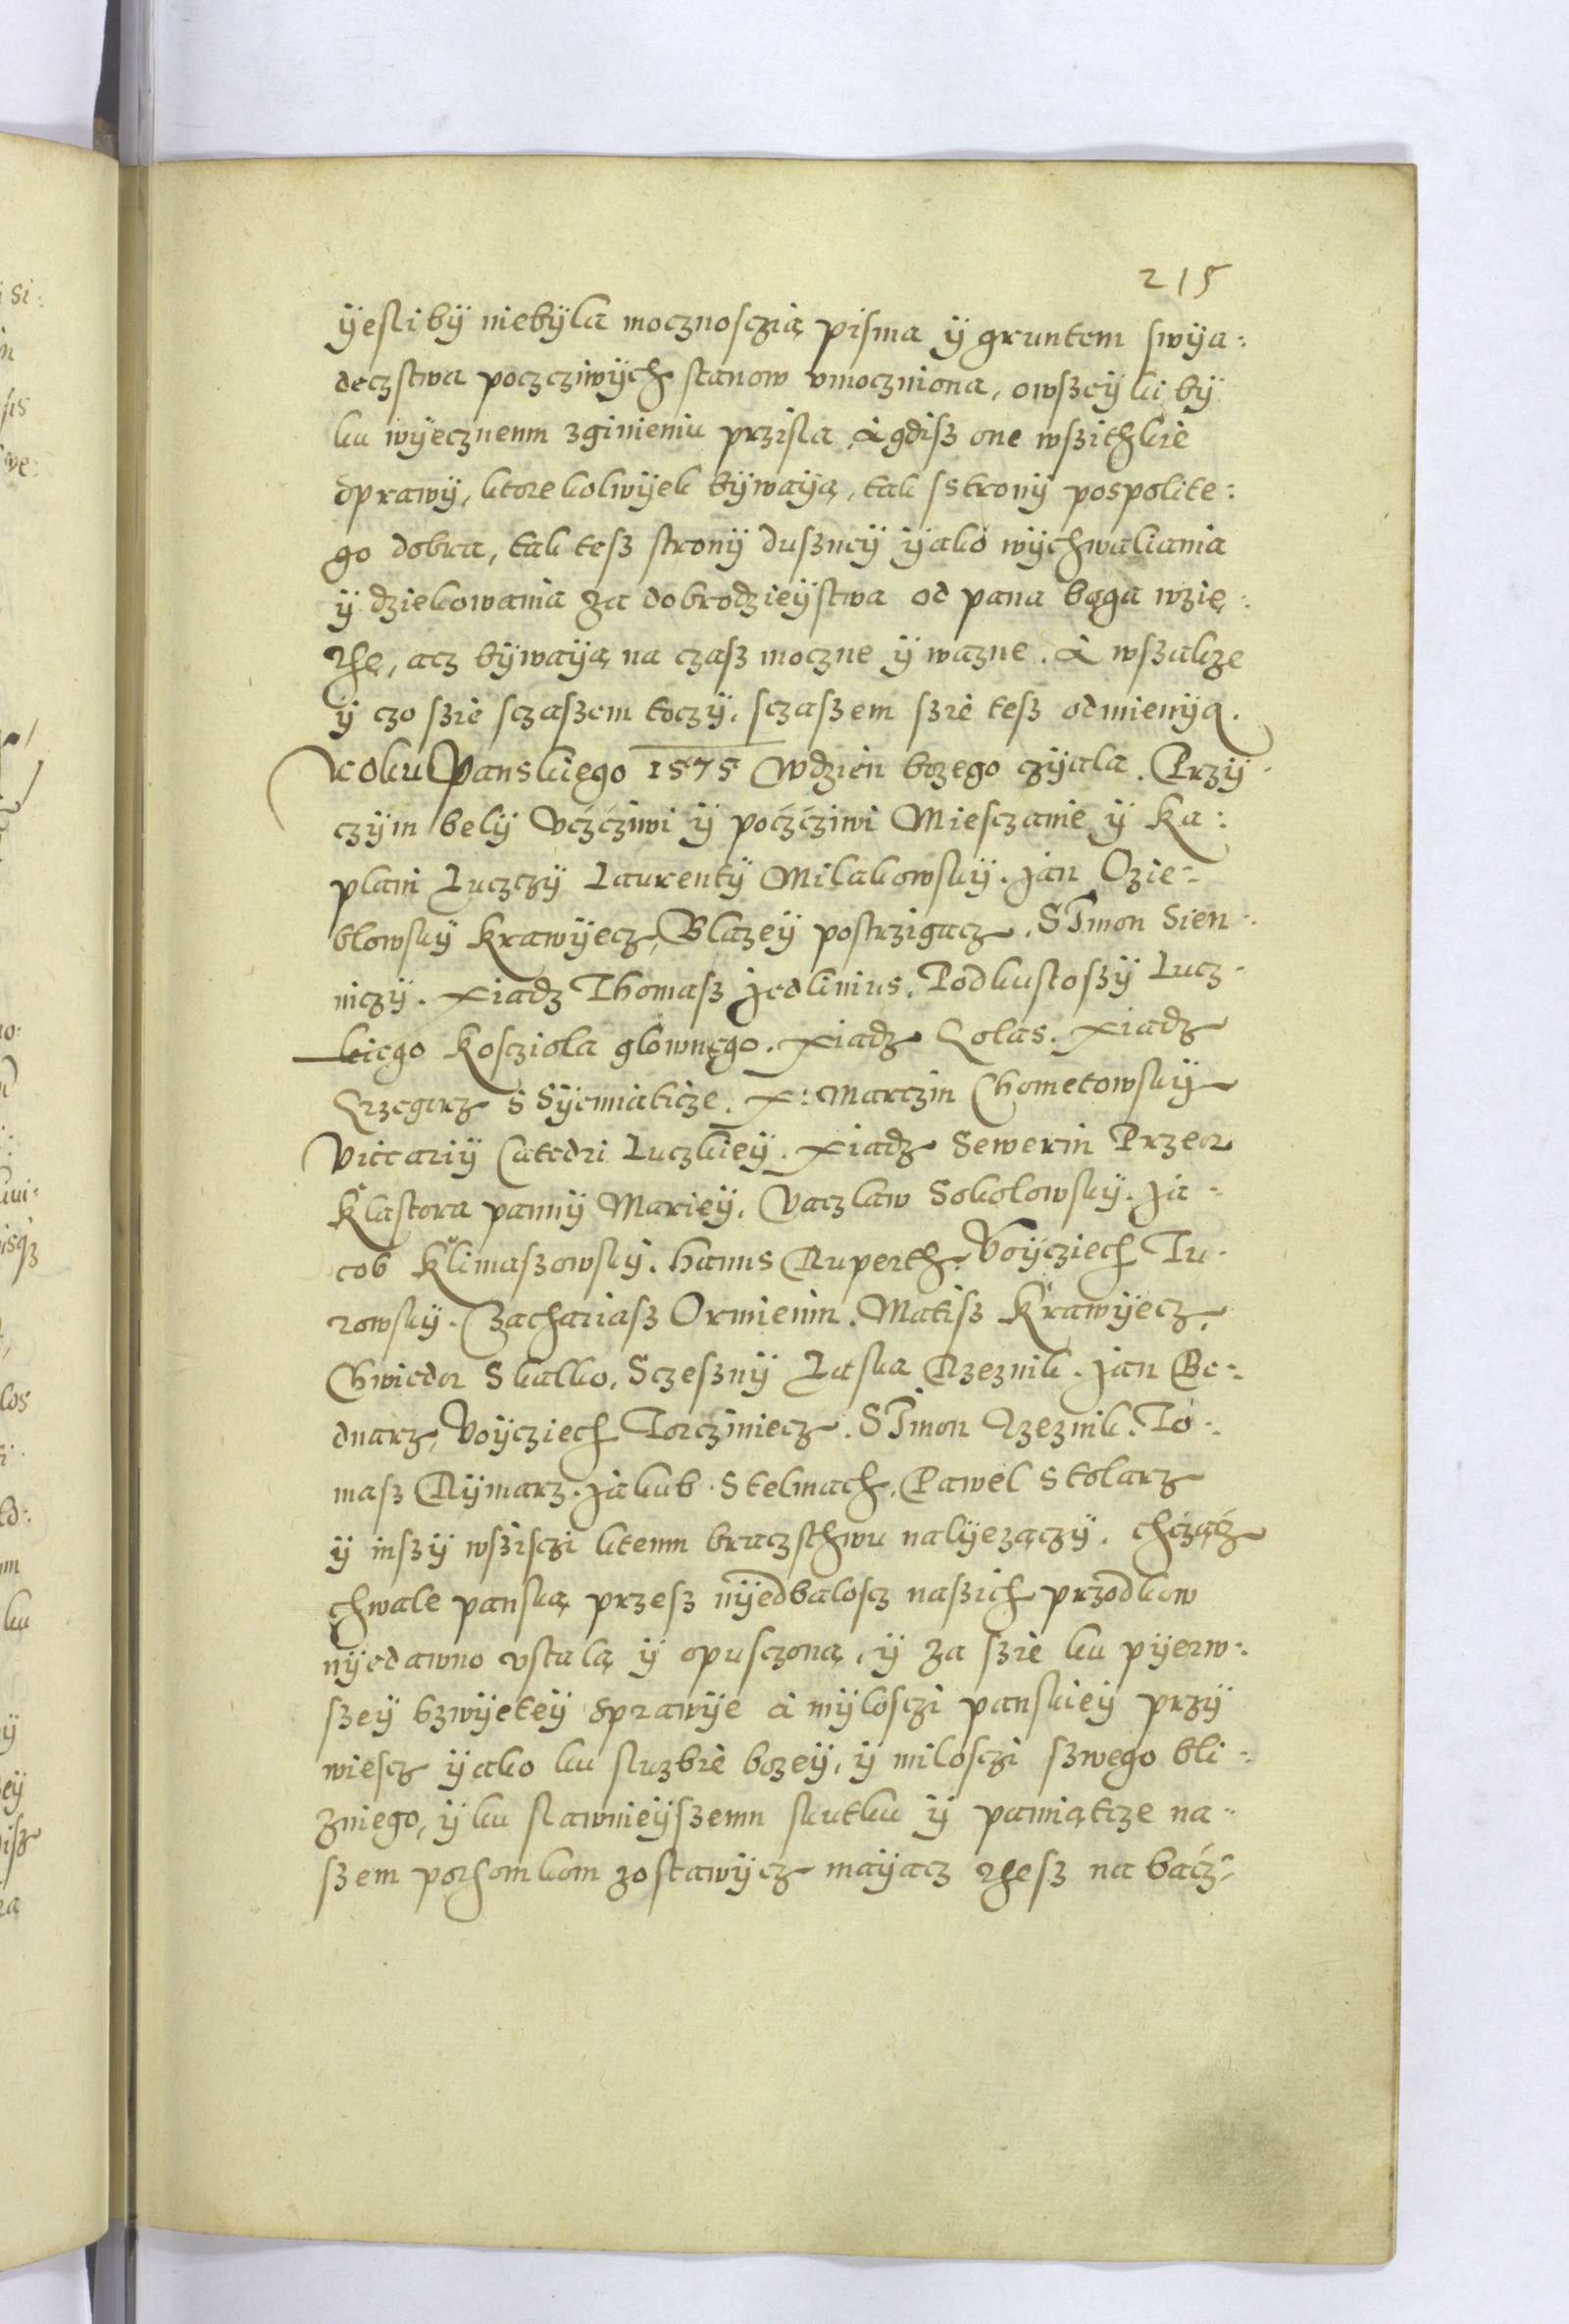 215
ÿesli bÿ niebÿla mocznosczią pisma ÿ gruntem swÿa:
deczstwa poczcziwÿch stanow vmoczniona, owszeÿki bÿ
ku wÿecznemu zginieniu przisla, à gdisz one wszithkie
sprawÿ, ktorekolwÿek bÿwaÿą, tak sstronÿ pospolite:
go dobra, tak tesz stronÿ duszneÿ ÿako wÿchwaliania
ÿ dziekowania za dobrodzieÿstwa od pana boga wzię:
the, acz bÿwaÿą na czasz moczne ÿ wazne. A wszakze
ÿ czo szie sczaszem toczÿ, sczaszem szie tesz odmienÿą.
Roku Panskiego 1575 Wdzien bozego czÿala. Przÿ
czÿm belÿ Vczcziwi ÿ poczcziwi Miesczanie ÿ Ka:
plani Luczczÿ Laurentÿ Milakowskÿ. Jan Ozie:
blowskÿ Krawÿecz, Blazeÿ postrzigacz. Sÿmon Sien:
niczÿ. Xiadz Thomasz Jedlinius, Podkustoszÿ Lucz:
kiego Kosciola glownego. Xiadz Lolas. Xiadz
Grzegorz s Sÿemiaticze. X: Marczin Chometowskÿ
Viccariÿ Catedri Luczkieÿ. Xiadz Sewerin Przeor
Klastora pannÿ Marieÿ, Vaczlaw Sokolowskÿ. Ja:
cob Klimaszowskÿ. Hanns Ruperth. Voÿcziech Tu:
rowskÿ. Zachariasz Ormienin. Matisz Krawÿecz,
Chwiedor Skalko, Sczesznÿ Laska Rzeznik. Jan Be:
dnarz, Voÿcziech Torcziniecz. Sÿmon Rzeznik. To:
masz Rÿmarz. Jakub Stelmach, Pawel Stolarz
ÿ inszÿ wszisczi ktemu braczsthwu nalÿezączÿ. chcząćz
chwale panską przesz nÿedbaloscz naszich przodkow
nÿedawno vstalą ÿ opusczoną, ÿ za szie ku pÿerw:
szeÿ bzwÿeteÿ sprawÿe à mÿlosczi panskieÿ przÿ
wiescz ÿako ku sluzbie bozeÿ, ÿ milosczi szwego bli:
zniego, ÿ ku slawnieÿszemu skutku ÿ pamiątcze na:
szem pothomkom zostawÿcz maÿacz thesz na bacz: